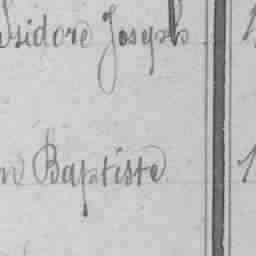 Isidore Joseph
n Baptiste